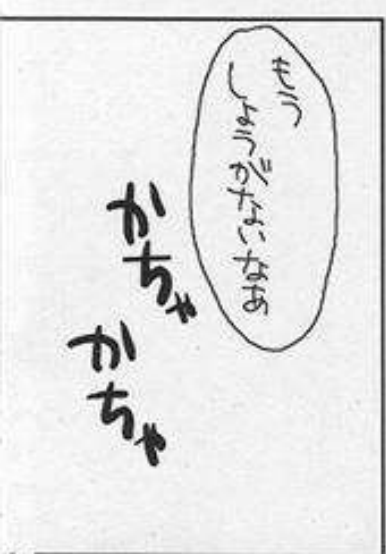 もう
しょうがないなあ
かちゃ
かちゃ